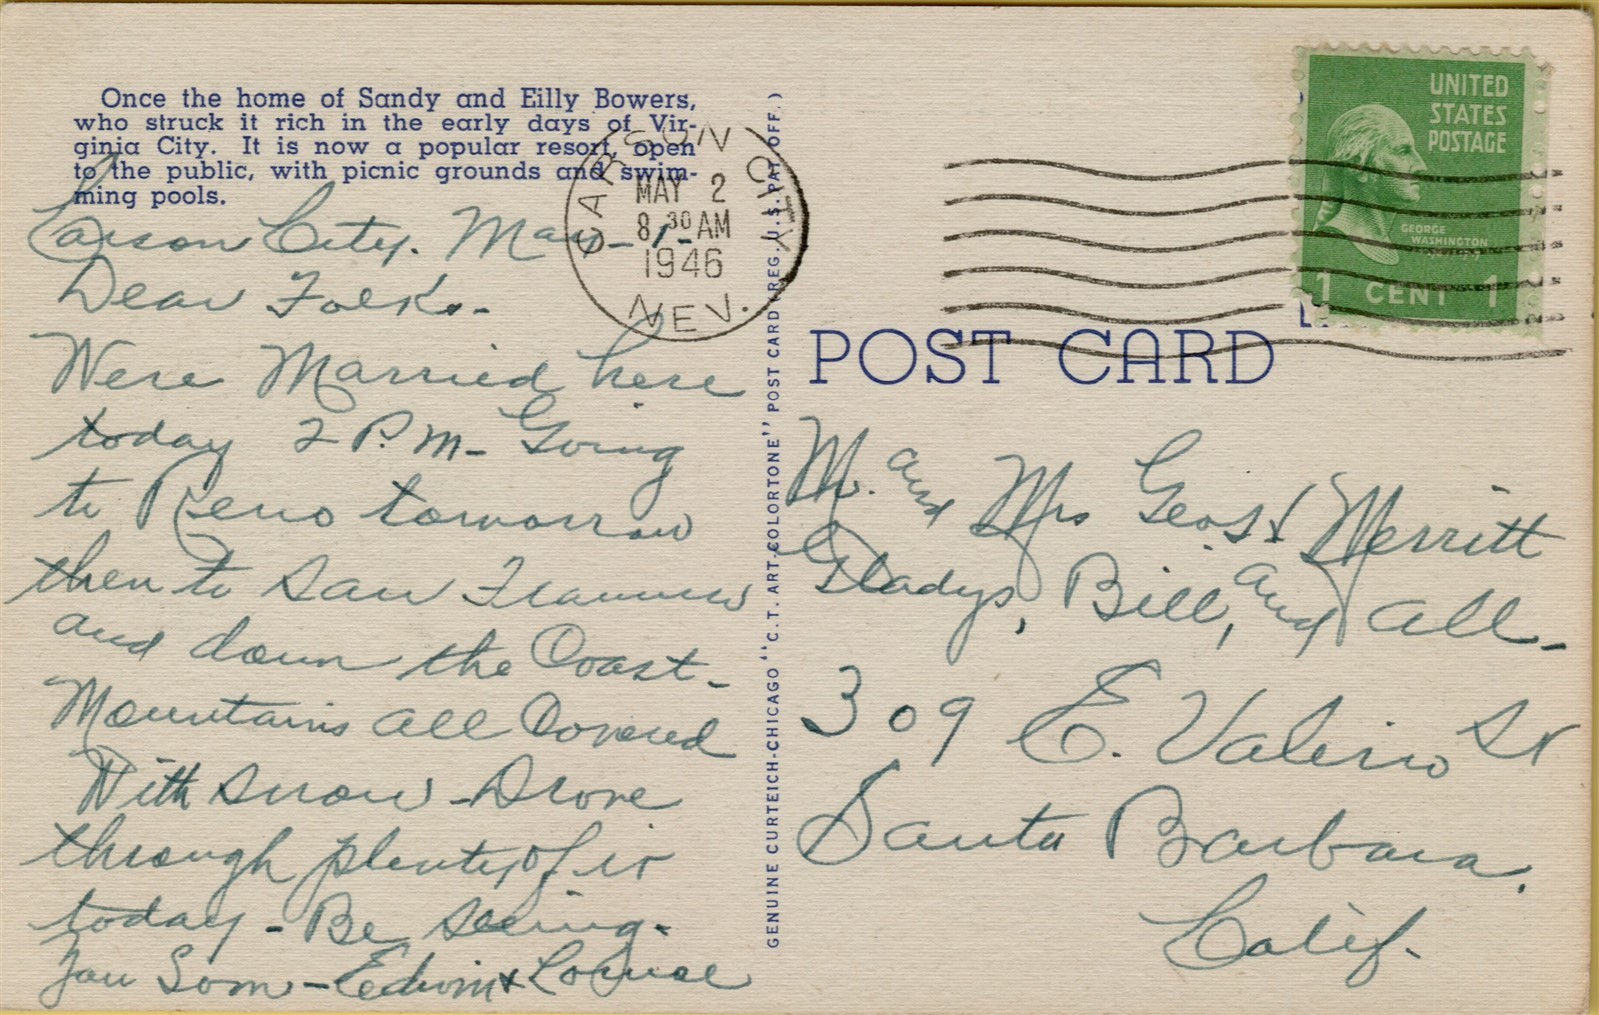 Once the home of Sandy and Eilly Bowers,
who struck it rich in the early days of Vir-
ginia City. It is now a popular resort, open
to the public, with picnic grounds and swim-
ming pools.
Carson City. May-1-
Dear Folks.-
Were Married here
today 2 P.M- Going
to Reno tomorrow
then to San Francisco
and down the Coast-
Mountains all Covered
With snow - Drove
through plenty of it
today - Be seeing-
you Soon - Edwin & Louise
CARSON CITY
MAY 2
8 30 AM
1946
NEV.
GENUINE CURTEICH-CHICAGO "C.T. ART-COLORTONE" POST CARD (REG. U.S. PAT. OFF.)
UNITED
STATES
POSTAGE
GEORGE
WASHINGTON
1 CENT 1
POST CARD
Mr. and Mrs Geo Merritt
Gladys, Bill, and all-
309 E. Valerio St
Santa Barbara,
Calif.